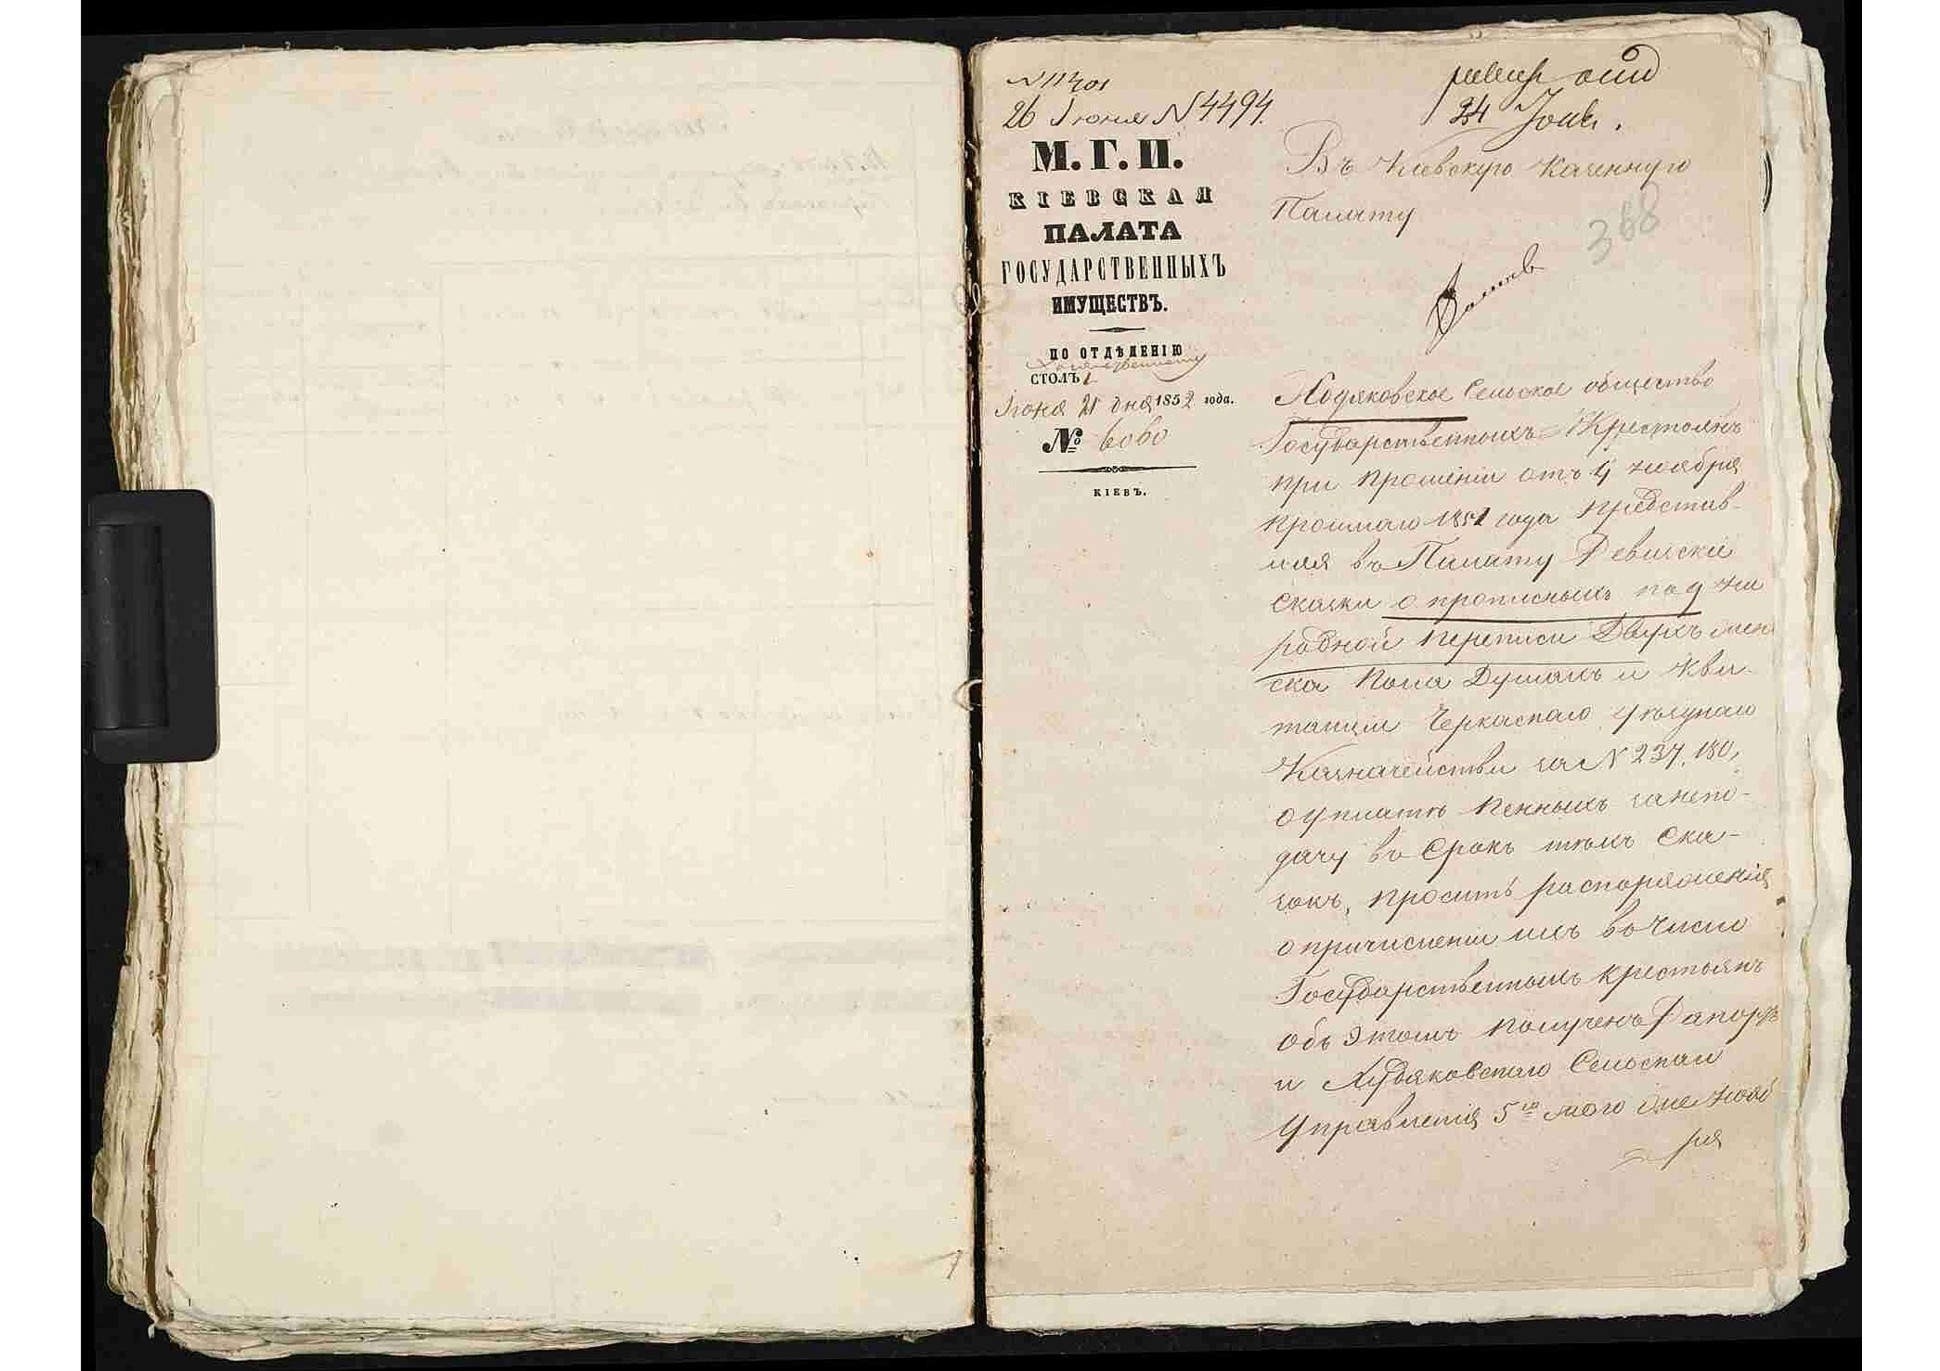 26 Іюня N 4494.
24 Іюня.
М.Г.И.
КІЕВСКАЯ
ПАЛАТА
ГОСУДАРСТВЕННЫХЪ
ИМУЩЕСТВЪ.
ПО ОТДѢЛЕНІЮ
Хозяйственному
СТОЛЪ 1
Іюня 21 дня 1852 года.
№ 6060
КІЕВЪ.
Въ Кіевскую Казенную
Палату
368
Худяковское Сельское общество
Государственныхъ Крестьянъ
при прошеніи отъ 4 ноября
прошлаго 1851 года представ-
ляя въ Палату Ревизскіе
сказки о прописныхъ по 9 на
родной переписи Двухъ жен
ска пола Душахъ и Кви-
танціи Черкаскаго Уѣзднаго
Казначейства за N 237, 180,
о уплатѣ пенныхъ за непо-
дачу въ Срокъ тѣхъ Ска-
зокъ, проситъ распоряженія
о причисленіи ихъ въ Число
Государственныхъ крестьянъ
объ этомъ полученъ Рапортъ
и Худяковскаго Сельскаго
Управленія 5го того же нояб
ря